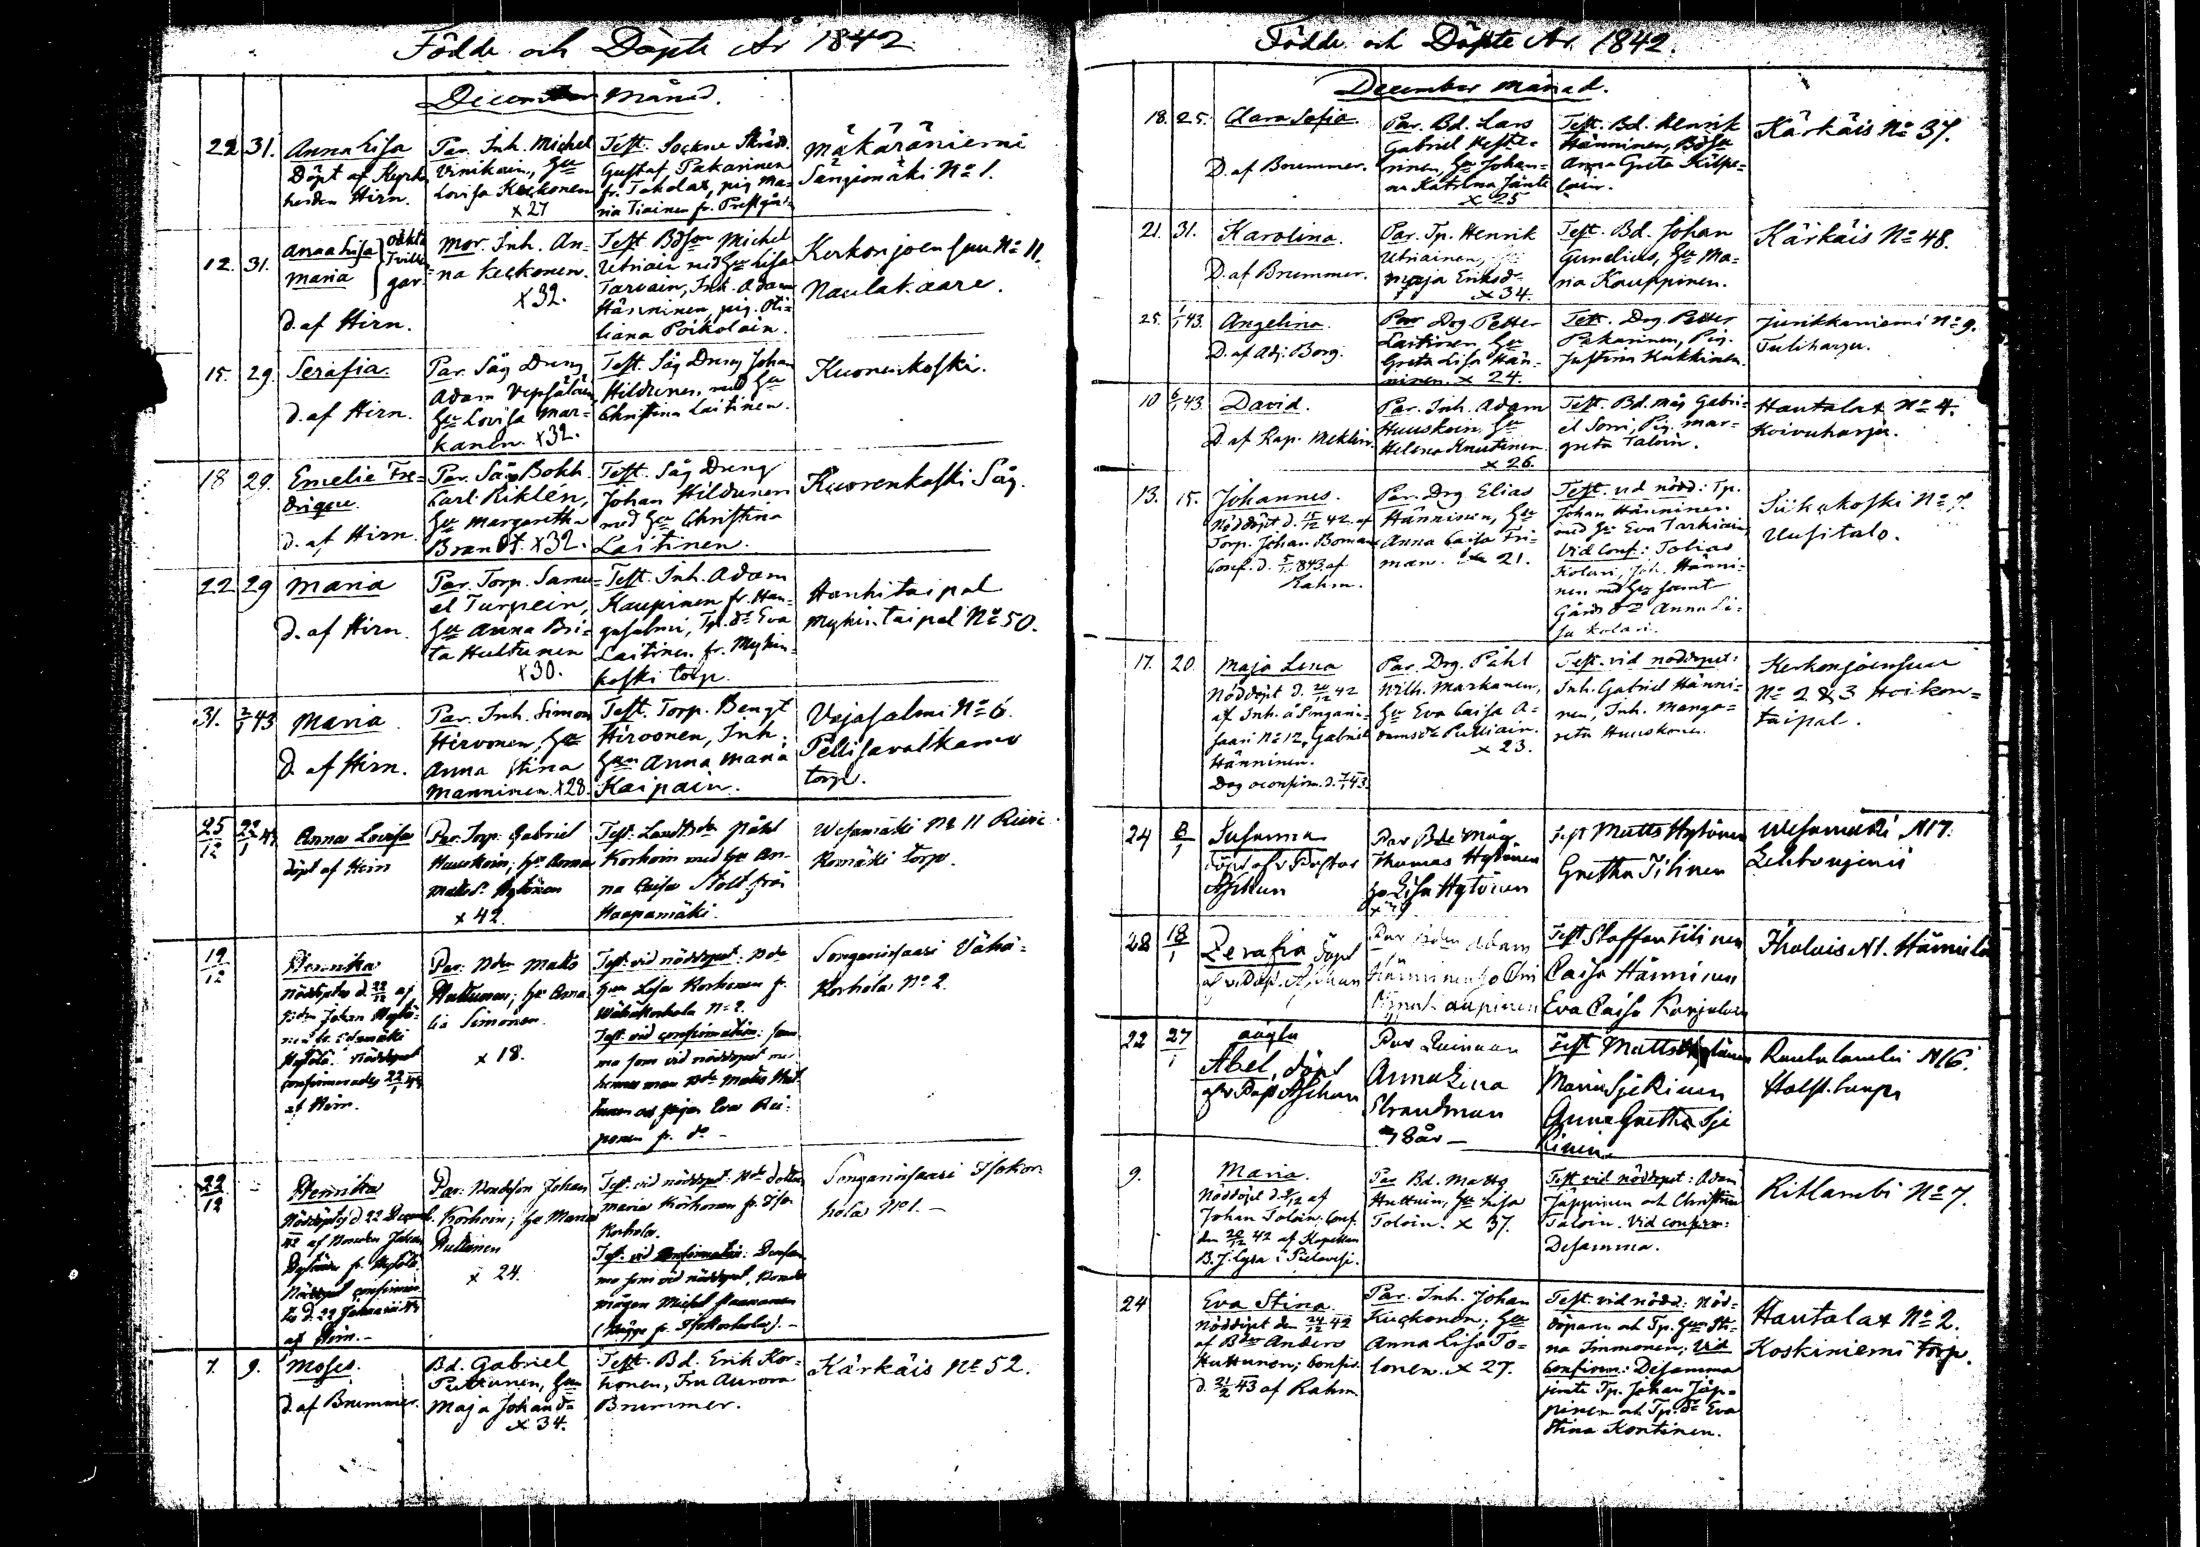 Födde och Döpte År 1842
December Månad.
22 31. Anna Lisa
Döpt af Kyrko
herden Hirn.
Par. Inh. Michel
Vinikain, Hu
Lovisa Keckonen
x 27
Test. Sockne Skrädd.
Gustaf Pakarinen
fr. Tahdax, pig Ma-
ria Tiainen fr. Prestgån
Mäkäräniemi
Sängiomäki No 1.
12. 31. Anna Lisa
Maria
gar.
D. af Hirn.
Mor. Inh. An-
na Keckonen.
x 32.
Test Bdson Michel
Utriain med Hu Lisa
Tarvain, Inh. Adam
Hänninen, pig. Oti-
liana Poikolain.
Kerkonjoensuu No 11.
Naulakaare.
15. 29. Serafia.
D. af Hirn.
Par. Såg Dreng
Adam Vepsäläin
Hu Lovisa Mar-
kanen. x 32.
Test. Såg Dreng Johan
Hildunen med Hu
Christina Laitinen.
Kuorenkoski.
18 29. Emelie Fre-
drique.
D. af Hirn.
Par. Såg Bokh.
Carl Riklén,
Hu Margaretha
Brandt. x 32.
Test. Såg Dreng
Johan Hildunen
med Hu Christina
Laitinen.
Kuorenkoski Såg.
22 29 Maria
D. af Hirn.
Par. Torp. Samu-
el Turpein,
Hu Anna Bri-
ta Hultunen
x 30.
Test. Inh. Adam
Kaupinen fr. Han-
gasalmi, Tp. dr Eva
Laitinen fr. Myhin-
koski torp.
Hanhitaipal
Myhintaipal No 50.
31. 2/1 43 Maria
D. af Hirn.
Par. Inh. Simon
Hirvonen, Hu
Anna Stina
Manninen. x 28.
Test. Torp. Bengt
Hirvonen, Inh.
Hun Anna Maria
Kaipain.
Vajasalmi No 6.
Pellisavalkama
torp.
25/12 22/1 43 Anna Lovisa
döpt af Hirn
Par. Torp: Gabriel
Huuskoin; Hu Anna
Matsdr Hytönen
x 42.
Test: Påhl
Korhoin med Hu An-
na Caisa Stolt från
Haapamäki.
Wesamäki No 11
torp.
19/12 Henrika
Nöddöptes d. 22/12 af
Johan Hytö-
Hytölä. Nöddopet
confirmerades 22/1 43
af Hirn.
Par: Mats
Huttunen; Hu Ama-
lia Simonen.
x 18.
Test. vid nöddopet:
Hun Lisa Korhonen fr.
Wähäkorhola No 2.
Test. vid confirmation: sam
ma som vid nöddopet
Mats Hut-
tunen och pigan Eva Rei-
ponen fr. do -
Songarinsaari Vähä-
Korhola No 2.
22/12 - Henrika
Nöddöptes d 22 Decemb.
42 af Johan
Hytönen fr. Hytölä.
Nöddopet confirmera-
des d. 22 Januarii 43
af Hirn. -
Par: Johan
Korhoin; Hu Maria
Huttunen
x 24.
Test. vid nöddopet: dotter
Maria Korhonen fr. Iso-
Korhola.
Test. vid confirmation: Densam
ma som vid nöddopet,
mågen Michel Paananen
(bägge fr. Isokorhola). -
Songarinsaari Isokor-
hola No 1. -
7. 9. Moses.
D. af Brummer.
Bd. Gabriel
Puttunen, Hun
Maja Johansdr
x 34.
Test. Bd. Erik Kor-
honen, Fru Aurora
Brummer.
Kärkäis No 52.
Födde och Döpte År 1842.
December Månad.
18. 25. Clara Sofia.
D. af Brummer.
Par. Bd. Lars
Gabriel Veste-
rinen, Hu Johan-
na Katrina Jänte
x 25
Test. Bd. Henrik
Hänninen, Bdsu
Anna Greta Kilpe-
lain.
Kärkäis No 37.
21. 31. Karolina.
D. af Brummer.
Par. Tp. Henrik
Utriainen,
Maja Eriksdr
x 34.
Test. Bd. Johan
Gunelius, Hu Ma-
ria Kauppinen.
Kärkäis No 48.
25. 1/1 43. Angelina.
D. af Adj. Borg.
Par Drg Petter
Laitinen, Hu
Greta Lisa Hän-
ninen. x 24.
Test. Drg. Petter
Pakarinen, Pig.
Justina Hukkinen.
Jurikkaniemi No 9.
Tuliharju.
10 6/1 43. David.
D. af Kap. Meklin.
Par. Inh. Adam
Huuskoin, Hu
Helena Knutinen
x 26.
Test. Bd. måg Gabri-
el Sorri, Pig. Mar-
greta Taloin.
Hautalax No 4.
Koivuharju.
13. 15. Johannes.
Nöddöpt d. 15/12 42. af
Torp. Johan Boman
Conf. d. 5/1 843. af
Rahm.
Par. Drg Elias
Hänninen, Hu
Anna Caisa Fri-
man. x 21.
Test. vid nödd: Tp.
Johan Hänninen
med Hu Eva Tarkiain,
Vid Conf: Tobias
Kolari, Joh. Hänni-
nen med Hu samt
Gårds dr Anna Li-
sa Kolari.
Siikakoski No 7.
Uusitalo.
17. 20. Maja Lena
Nöddöpt d. 20/12 42
af Inh. å Songarin-
saari No 12, Gabriel
Hänninen.
Dop o confirm. d. 7/1 43.
Par. Drg. Påhl
Wilh. Markanen,
Hu Eva Caisa A-
damsdr Pulliain.
x 23.
Test. vid nöddopet:
Inh. Gabriel Hänni-
nen, Inh. Marga-
reta Huuskonen.
Kerkonjoensuu
No 2 & 3 Hoikon-
taipal.
24 8/1 Susanna
döpt af v Pastor
Aschan
Par Bde Måg
Thomas Hytönen
Hu Lisa Hytönen
Test Matts Hytönen
Gretha Tilinen
Wesamäki N 7.
28 18/1 Zerafia döpt
af v. Past. Aschan
Par Adam
Hänninen
Test Staffan Tilinen
Caisa Hänninen
Eva Caisa Karjalain
Hänni
22 27/1 oägta
Abel, döpt
af v Past Aschan
Par Quinnan
Anna Lena
Strandman
28 år -
Test Matts Hytönen
Maria Sjekinen
Anna Gretha Sje
kinen
Rautalambi N 6.
9. Maria.
Nöddöpt d. 9/12 af
Johan Toloin; Conf.
den 20/12 42 af Kapellan
B. J. Lyra i Pielavesi.
Par Bd. Matts
Huttuin, Hu Lisa
Toloin. x 37.
Test vid nöddopet: Adam
Jäppinen och Christina
Taloin. Vid confirm:
Desamma.
Ritlambi No 7.
24 Eva Stina.
Nöddöpt den 24/12 42
af Bden Anders
Huttunen; Confir.
d. 21/2 43 af Rahm.
Par. Inh. Johan
Kuckonen; Hu
Anna Lisa To-
lonen. x 27.
Test vid nödd: Nöd-
döparen och Tp. Hun Sti-
na Immonen; Vid
Confirm: Desamma
jemte Tp. Johan Jäp-
pinen och Tp. dr Eva
Stina Kontinen.
Hautalax No 2.
Koskiniemi torp.